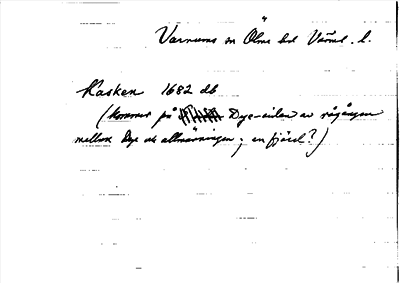 Varnums sn Ölme hd Värml. l.
Hasken 1682 db
(kommer på Dye-sidan av rågången
mellan Dye och allmänningen; en fjärd?)